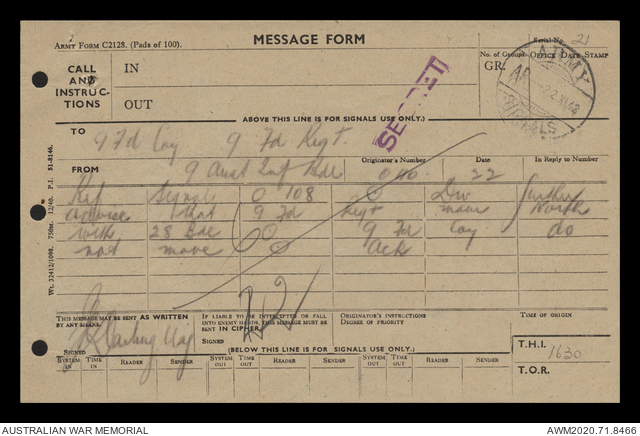 Army Form C2128. (Pads of 100).
MESSAGE FORM
Serial No. 21
CALL AND INSTRUC-TIONS
IN
OUT
No. of Groups
GR.
Office Date Stamp
ARMY
SIGNALS
SECRET
ABOVE THIS LINE IS FOR SIGNALS USE ONLY.)
TO
9 Fd Coy 9 Fd Regt.
FROM
9 Aust Inf Bde
Originator's Number
Date
22
In Reply to Number
Ref Signal O 108 Div further
advise that 9 Fd Regt move North
with 28 Bde 9 Fd Coy do
not move ACK
Wt. 32412/1098. 750m. 12/40. P.I. 51-8146.
THIS MESSAGE MAY BE SENT AS WRITTEN BY ANY MEANS.
SIGNED
IF LIABLE TO BE INTERCEPTED OR FALL INTO ENEMY HANDS, THIS MESSAGE MUST BE SENT IN CIPHER.
SIGNED
ORIGINATOR'S INSTRUCTIONS
DEGREE OF PRIORITY
TIME OF ORIGIN
(BELOW THIS LINE IS FOR SIGNALS USE ONLY.)
SYSTEM IN TIME IN READER SENDER SYSTEM OUT TIME OUT READER SENDER SYSTEM OUT TIME OUT READER SENDER
T.H.I. 1630
T.O.R.
AUSTRALIAN WAR MEMORIAL
AWM2020.71.8466